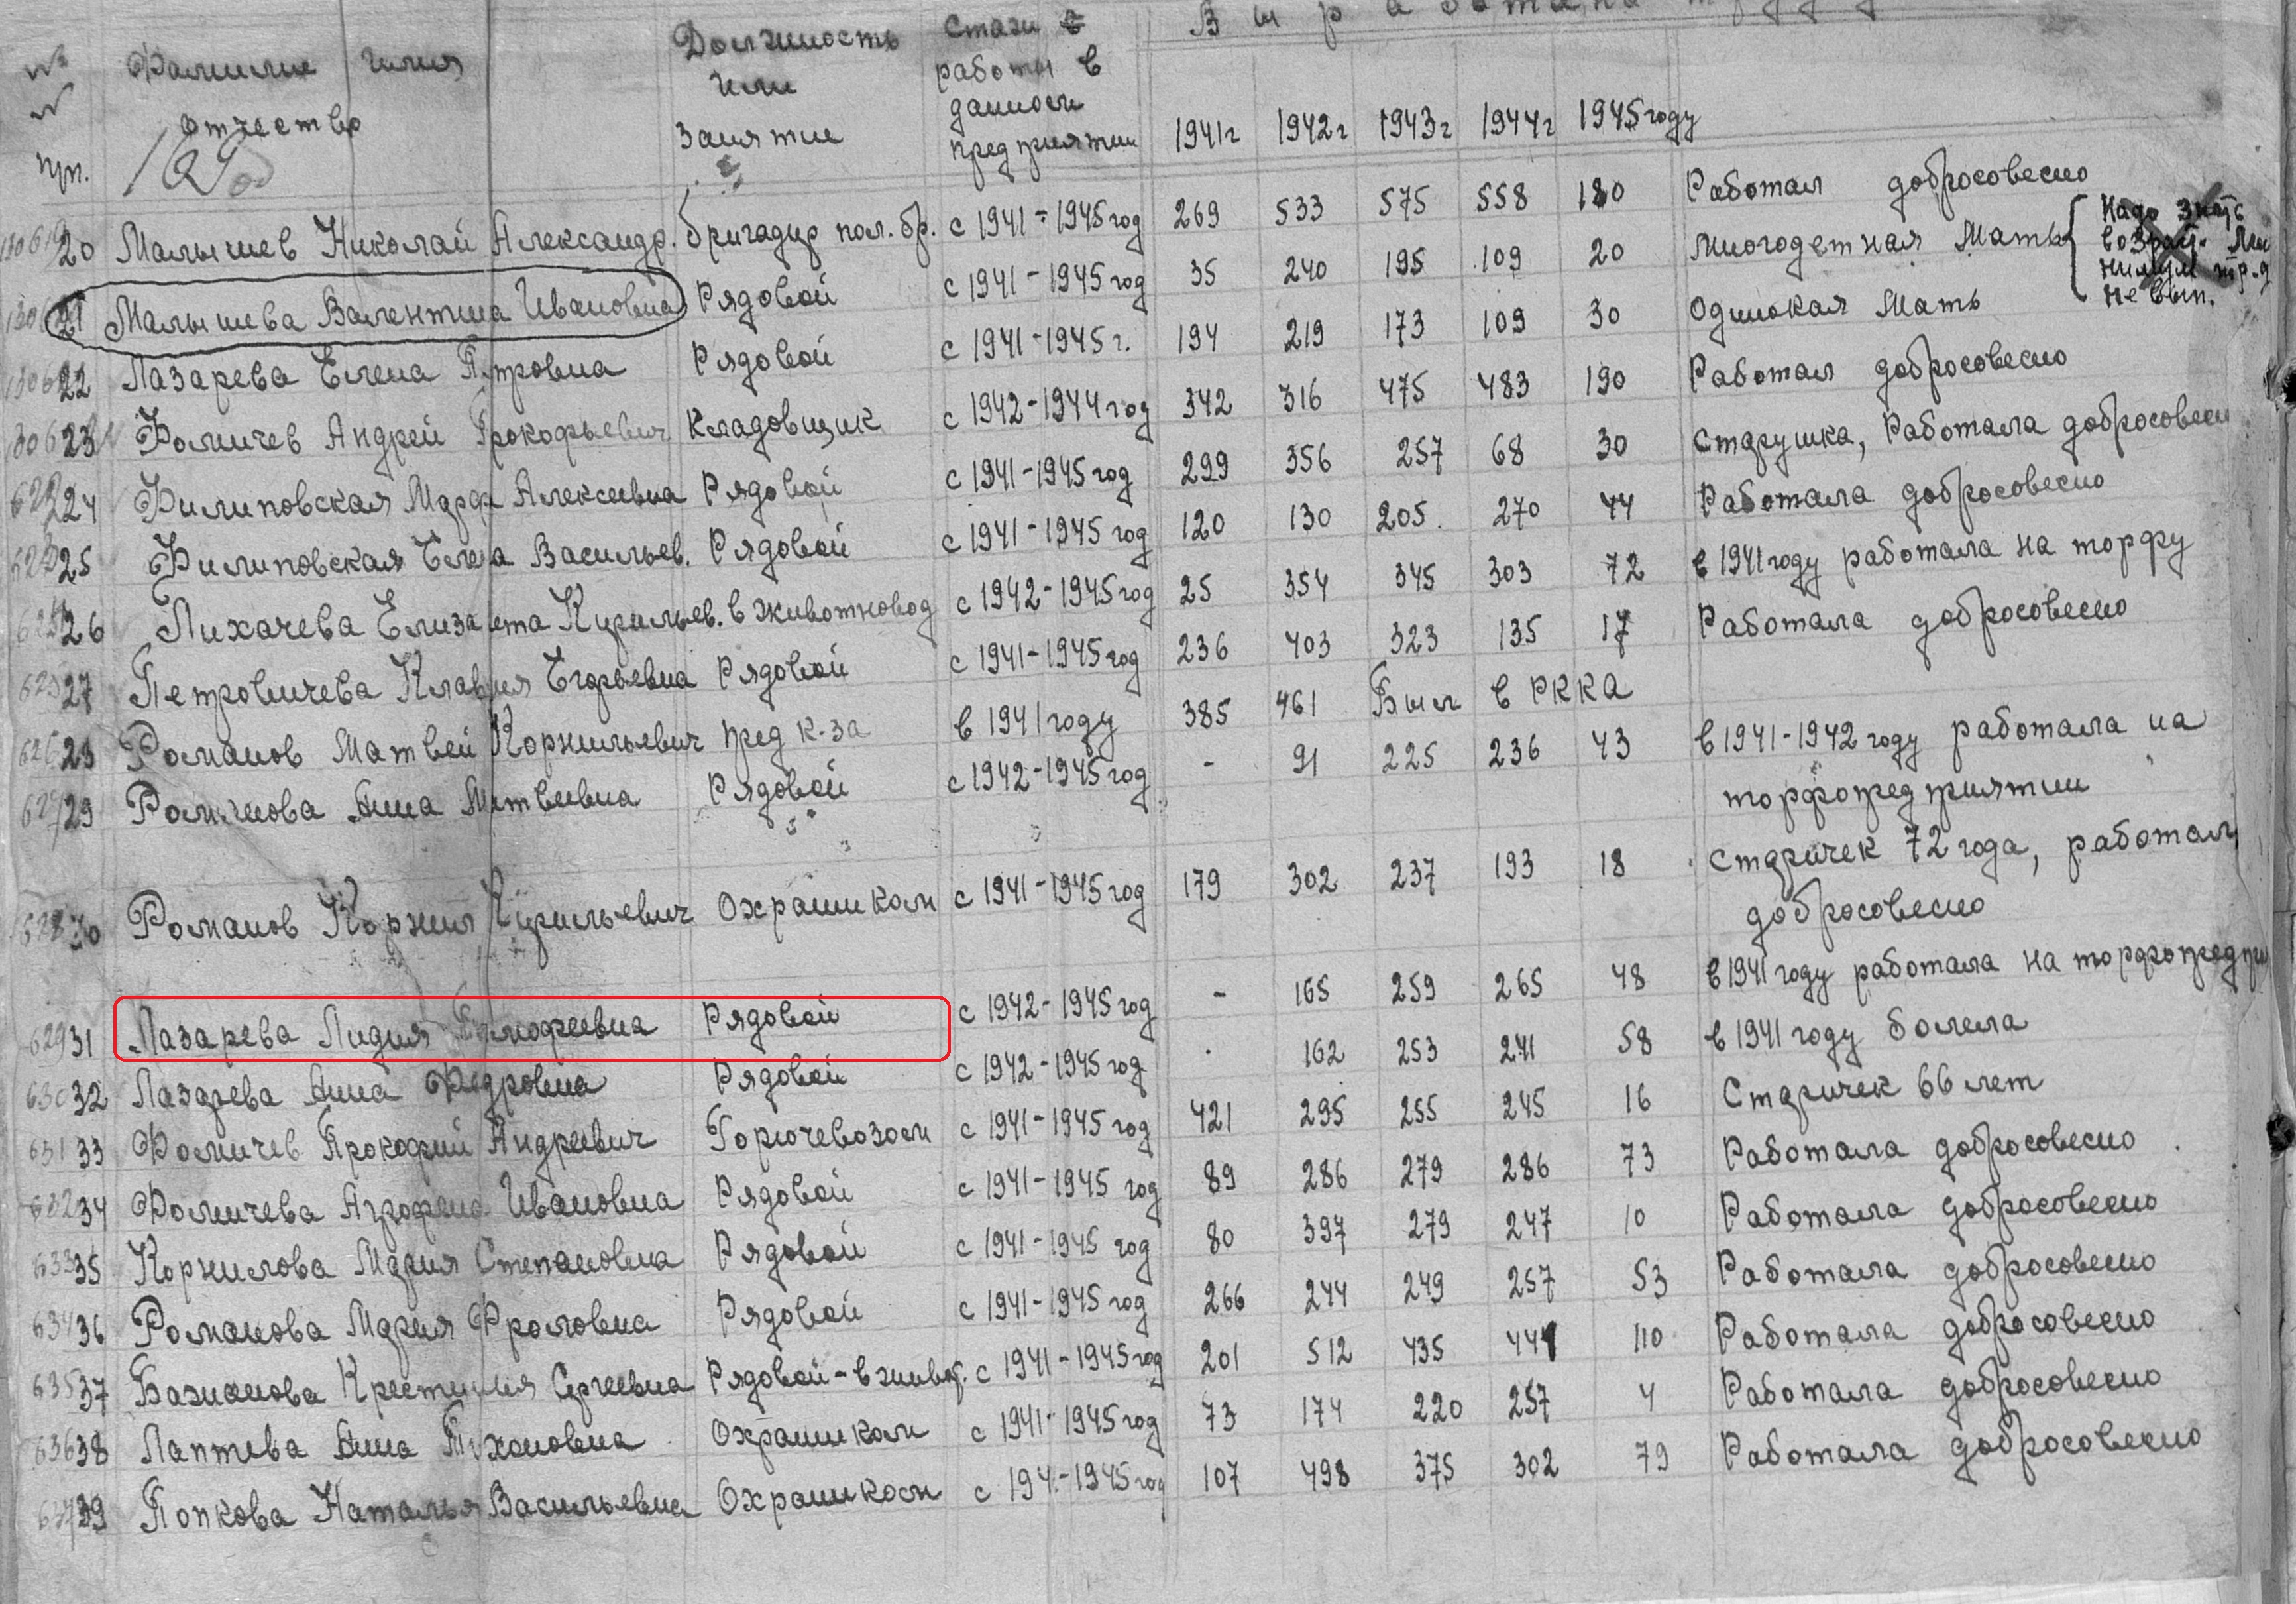 № Фамилие имя Должность Стаж работы в Выработано труд
№ отчество или данном
пп. занятие предприятии 1941г 1942г 1943г 1944г 1945году
20 Малышев Николай Александр. бригадир пол. бр. с 1941-1945 год 269 533 575 558 180 Работал добросовесно
21 Малышева Валентина Ивановна Рядовой с 1941-1945 год 35 240 195 109 20 Многодетная Мать { Надо знать
не вып.
22 Лазарева Елена Петровна Рядовой с 1941-1945г. 194 219 173 109 30 Одинокая Мать
23 Фомичев Андрей Прокофьевич Кладовщик с 1942-1944 год 342 316 475 483 190 Работал добросовесно
24 Филиповская Марфа Алексеевна Рядовой с 1941-1945 год 299 356 257 68 30 Старушка, Работала добросовесн
25 Филиповская Елена Васильев. Рядовой с 1941-1945 год 120 130 205 270 44 Работала добросовесно
26 Лихачева Елизавета Кирильев. в животновод с 1942-1945 год 25 354 345 303 72 в 1941 году работала на торфу
27 Петровичева Клавдия Егорьевна Рядовой с 1941-1945 год 236 403 323 135 17 Работала добросовесно
28 Романов Матвей Корнильевич пред к-за в 1941 году 385 461 Был в РККА
29 Романова Анна Матвеевна Рядовой с 1942-1945 год - 91 225 236 43 в 1941-1942 году работала на
торфопредприятии
30 Романов Корнил Кирильевич Охраником с 1941-1945 год 179 302 237 193 18 Старичек 72 года, работал
добросовесно
62931 Лазарева Лидия Тимофеевна Рядовой с 1942-1945 год - 165 259 265 48 в 1941 году работала на торфопредпри
63032 Лазарева Анна Федровна Рядовой с 1942-1945 год . 162 253 241 58 в 1941 году болела
63133 Фомичев Прокофий Андреевич Горючевозом с 1941-1945 год 421 295 255 245 16 Старичек 66 лет
63234 Фомичева Агрофена Ивановна Рядовой с 1941-1945 год 89 286 279 286 73 Работала добросовесно
63335 Корнилова Мария Степановна Рядовой с 1941-1945 год 80 397 279 247 10 Работала добросовесно
63436 Романова Мария Фроловна Рядовой с 1941-1945 год 266 244 249 257 53 Работала добросовесно
63537 Бажанова Крестинья Сергеевна Рядовой-в живот. с 1941-1945 год 201 512 435 444 110 Работала добросовесно
63638 Лаптева Анна Тихоновна Охраником с 1941-1945 год 73 174 220 257 4 Работала добросовесно
63739 Попкова Наталья Васильевна Охраником с 194.-1945 год 107 498 375 302 79 Работала добросовесно